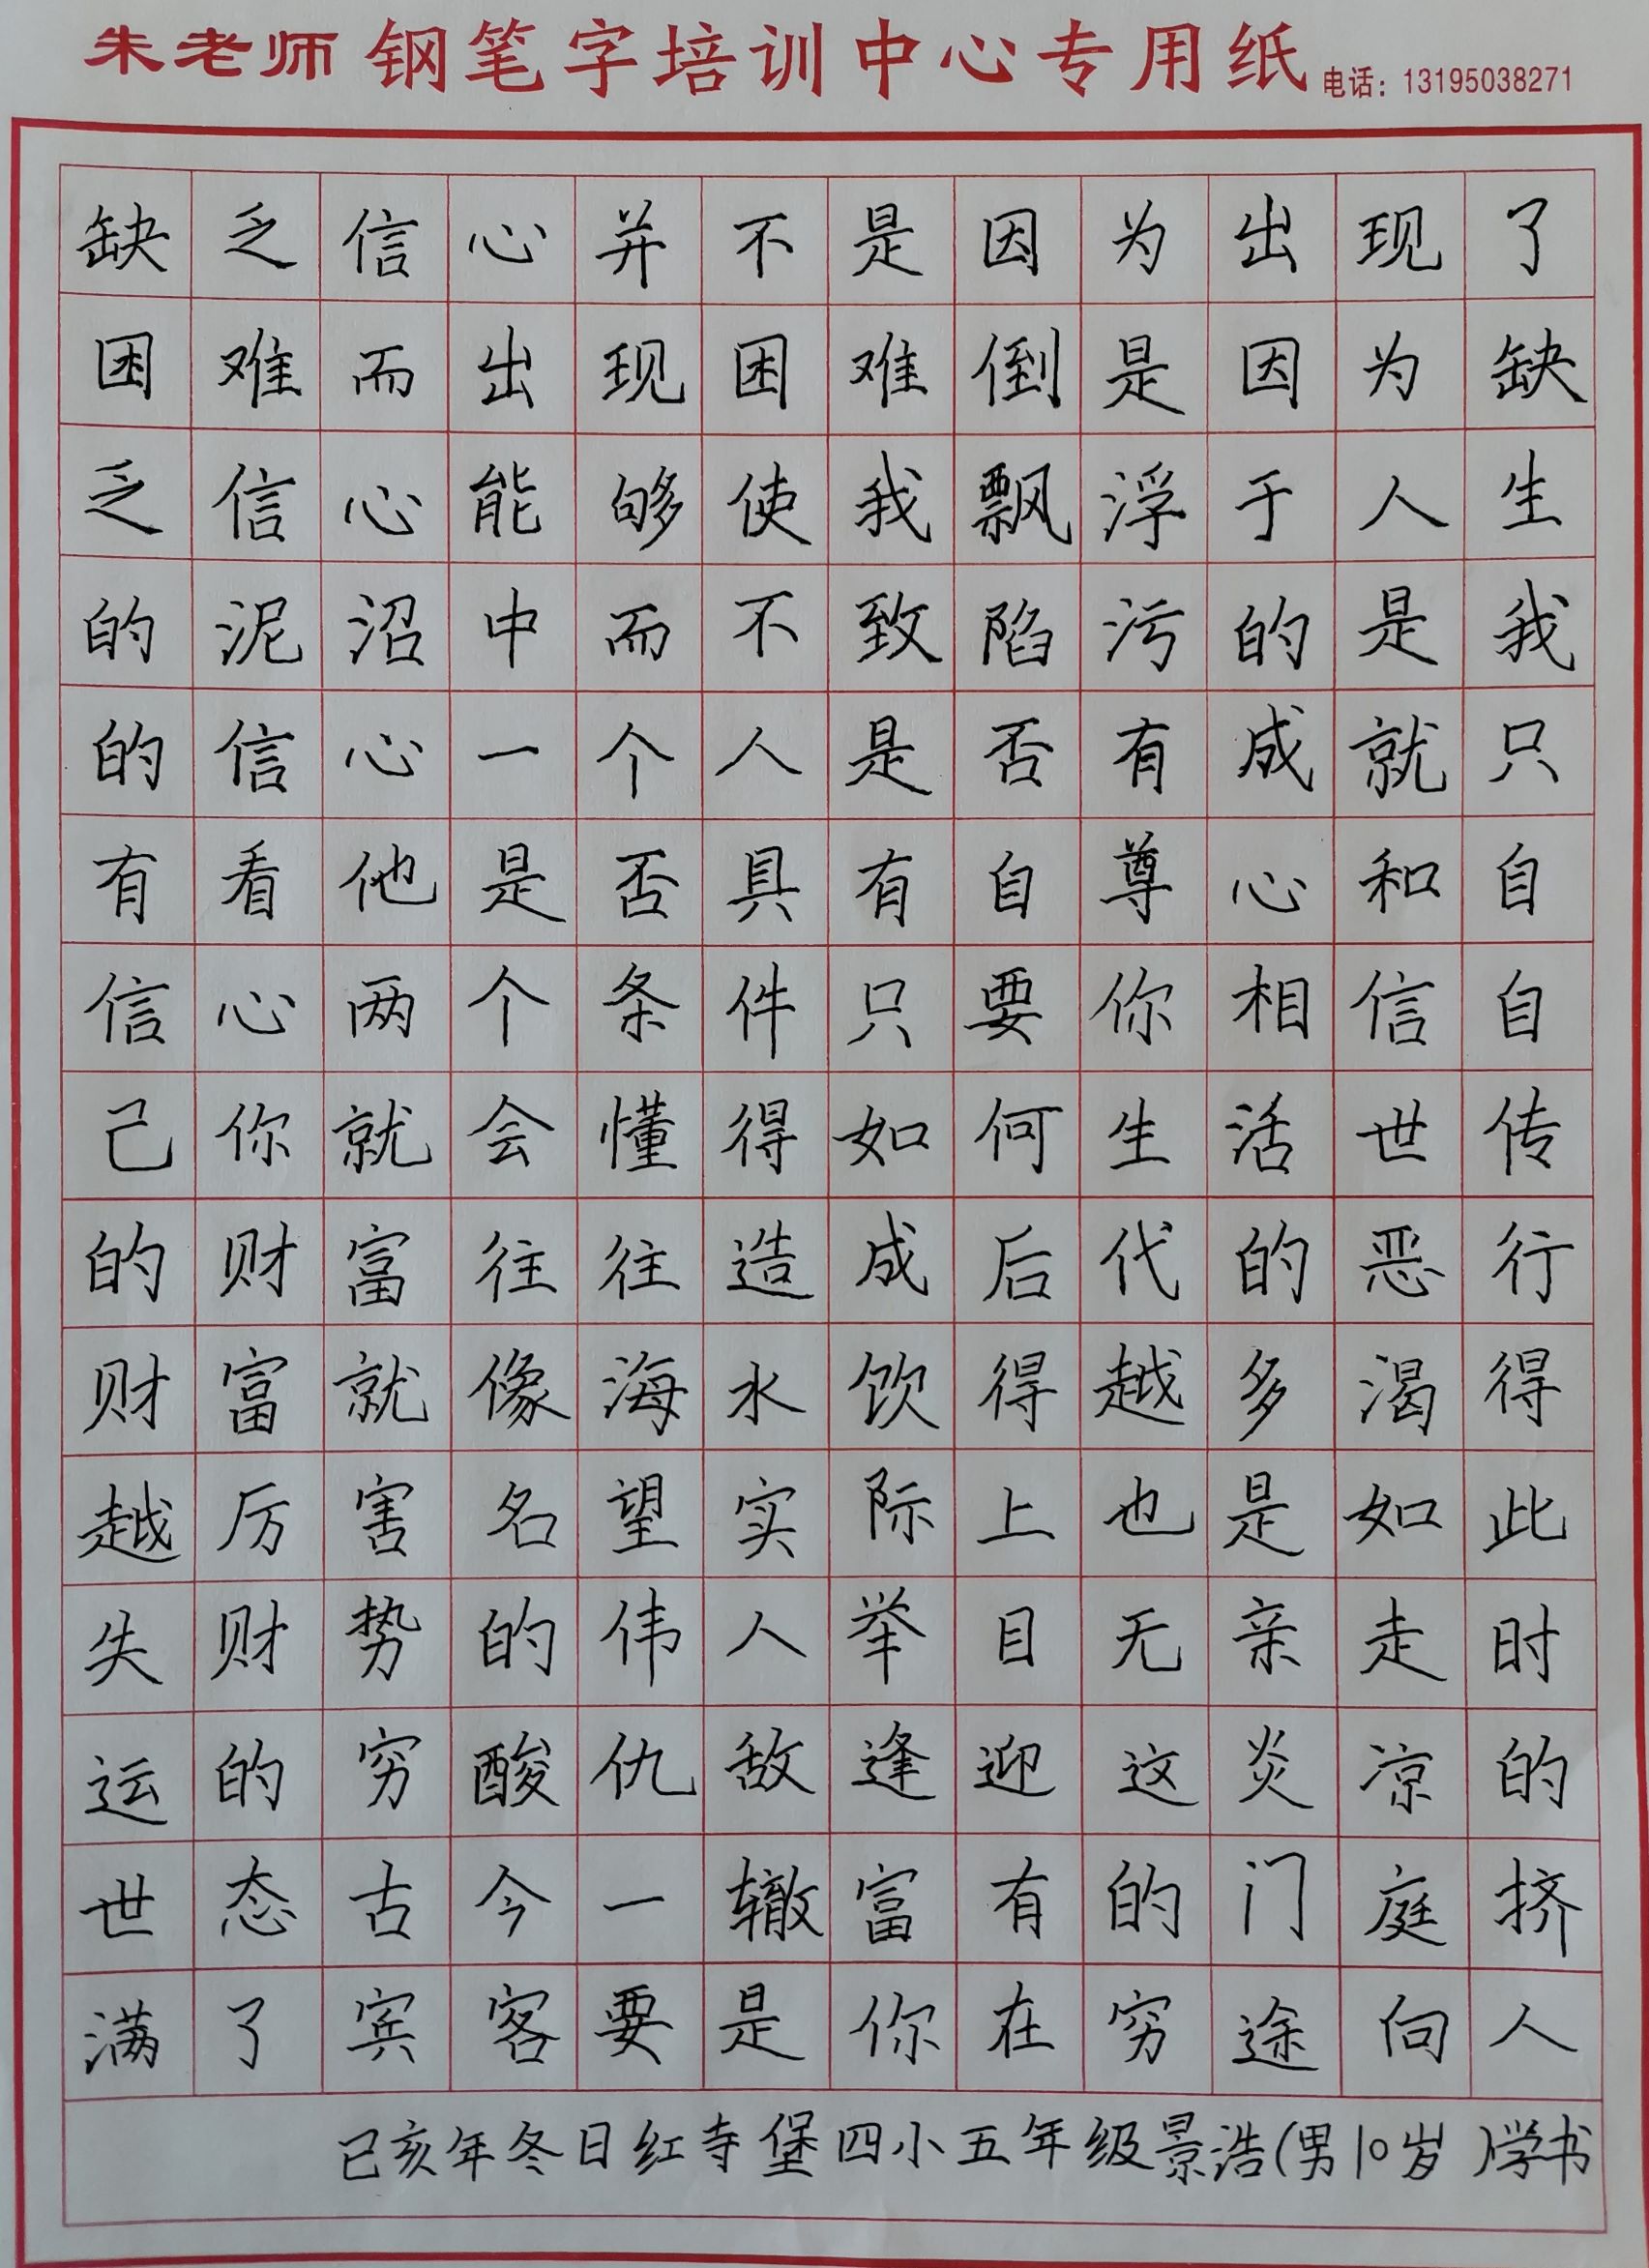 朱老师 钢笔字培训中心专用纸 电话：13195038271
缺乏信心并不是因为出现了
困难而出现困难倒是因为缺
乏信心能够使我飘浮于人生
的泥沼中而不致陷污的是我
的信心一个人是否有成就只
有看他是否具有自尊心和自
信心两个条件只要你相信自
己你就会懂得如何生活世传
的财富往往造成后代的恶行
财富就像海水饮得越多渴得
越厉害名望实际上也是如此
失财势的伟人举目无亲走时
运的穷酸仇敌逢迎这炎凉的
世态古今一辙富有的门庭挤
满了宾客要是你在穷途向人
己亥年冬日红寺堡四小五年级景浩(男10岁)学书